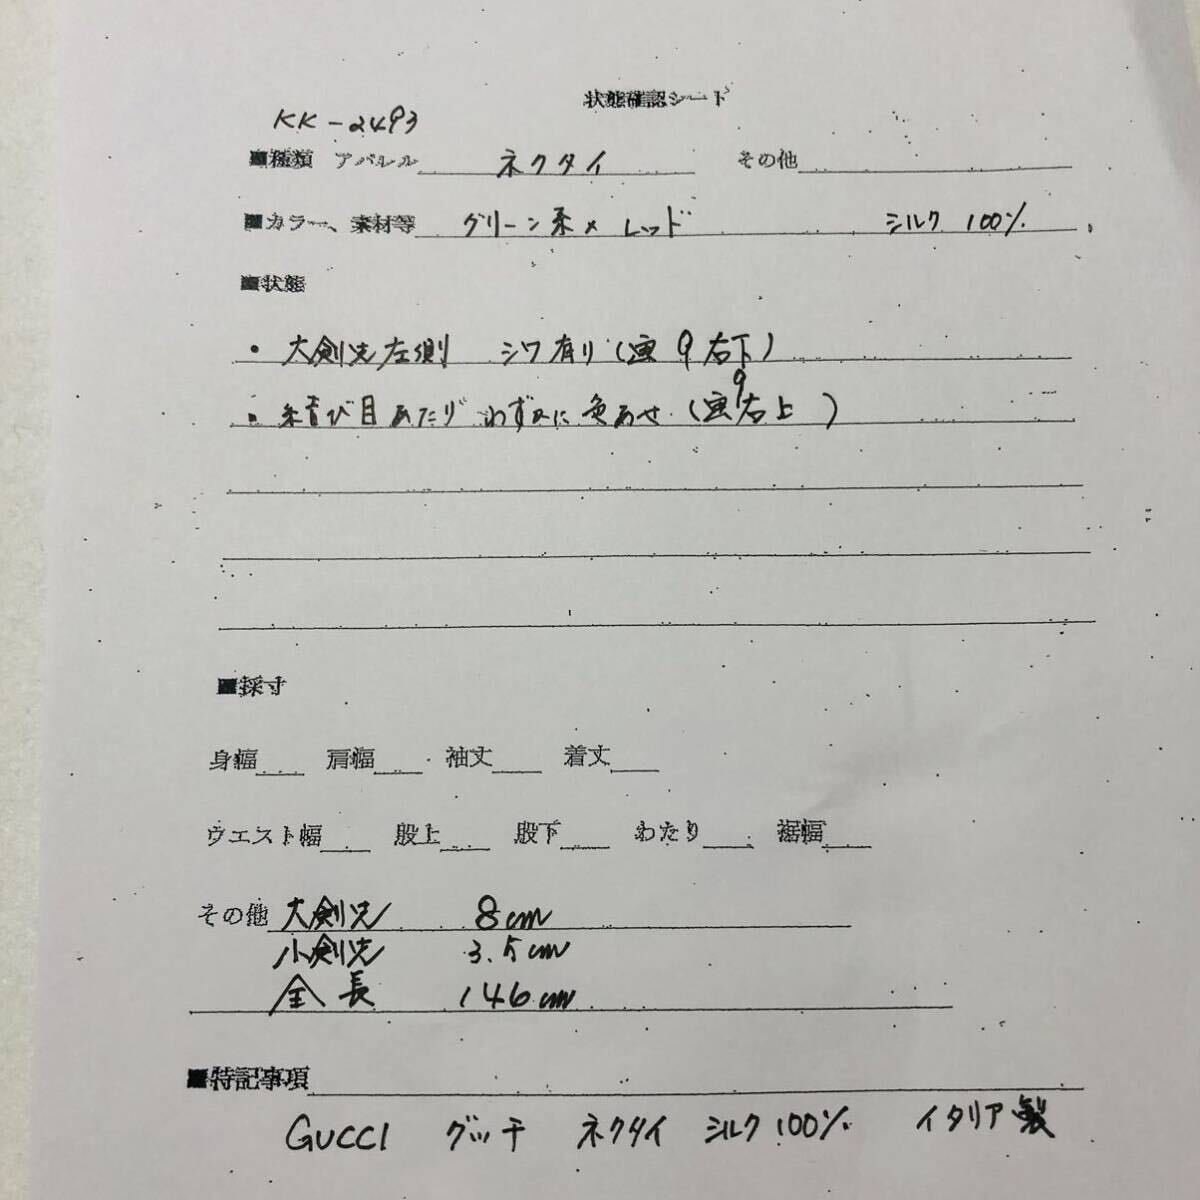 状態確認シート
KK-2493
■種類 アパレル ネクタイ その他
■カラー、素材等 グリーン系×レッド シルク 100%
■状態
・大剣先左側 シワ有り(画9右下)
・結び目あたりわずかに色あせ(画9右上)
■採寸
身幅 肩幅 袖丈 着丈
ウエスト幅 股上 股下 わたり 裾幅
その他 大剣先 8cm
小剣先 3.5cm
全長 146cm
■特記事項
GUCCI グッチ ネクタイ シルク100% イタリア製